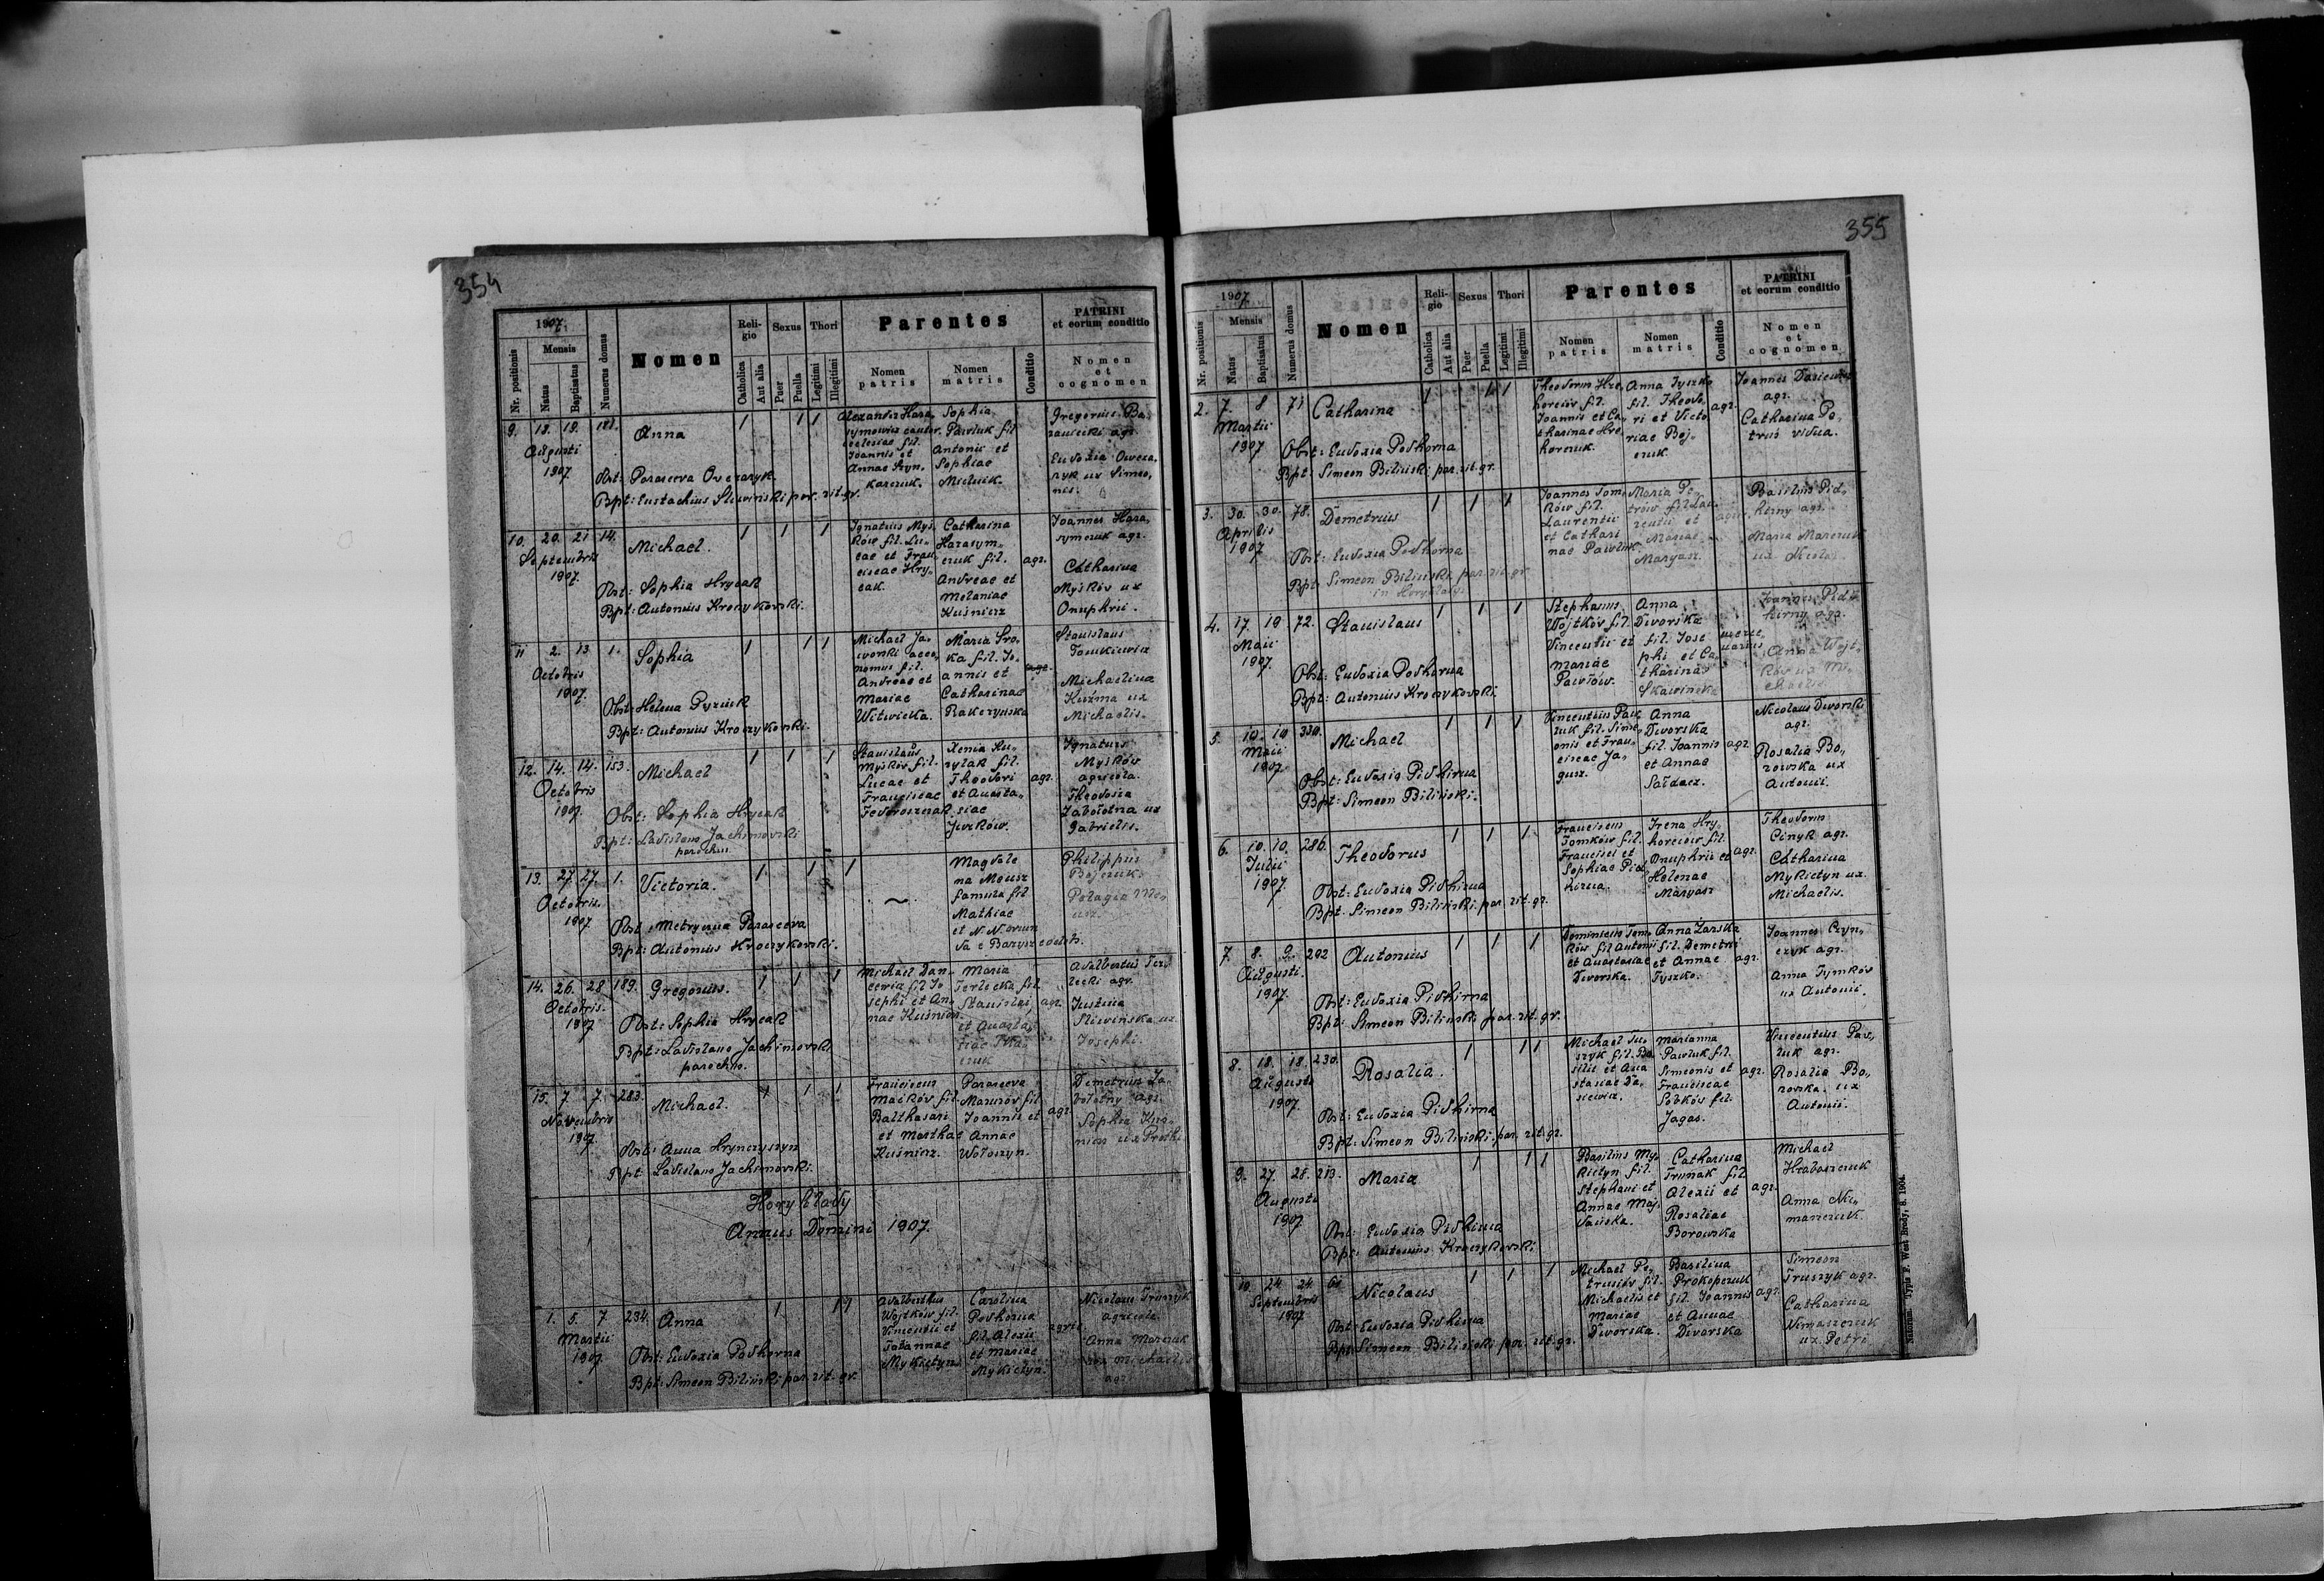 354
1907.
Nr. positionis
Mensis
Natus
Baptisatus
Numerus domus
Nomen
Religio
Catholica
Aut alia
Sexus
Puer
Puella
Thori
Legitimi
Illegitimi
Parentes
Nomen patris
Nomen matris
Conditio
PATRINI
et eorum conditio
Nomen
et
cognomen
9. 19. 181. Anna 1 1 1
Augusti
1907.
Sophia
Pawluk fil
Antonii et
Sophiae
Joannis et
Eudoxia
Obst: Parasceva Owczaryk
Bpt: Eustachius Sliwiński par. rit. gr.
10. 20. 21 14. Michael. 1 1 1
Septembris
1907.
Ignatius Mys
ków fil. Lu
cae et Fran
ciscae Hry
cak.
Catharina
Harasym
czuk fil.
Andreae et
Melaniae
Kuśnierz
agr.
Joannes Hara
symczuk agr.
Catharina
Myśków ux
Onuphrii.
Obst: Sophia Hrycak
Bpt: Antonius Kroczykowski.
11 2. 13 1. Sophia 1 1 1
Octobris
1907.
Andreae et
Mariae
Witwicka.
annis et
Catharinae
Stanislaus
Tomkiewicz
Michaelina
Kuźma ux
Michaelis.
Obst: Helena Pyzuik
Bpt: Antonius Kroczykowski.
12. 14. 14. 153. Michael 1 1 1
Octobris
1907.
Stanislaus
Myśków fil.
Lucae et
Franciscae
fil.
Theodori
et Anasta
siae
agr.
Ignatius
Myśków
agricola.
Theodosia
Zabołotna ux
Gabrielis.
Obst: Sophia Hrycak
Bpt: Ladislaus Jachimowski
parochus
13. 27. 27. 1. Victoria. 1 1 1
Octobris.
1907
Magdale
na
famula fil
Mathiae
Philippus
Bojczuk.
Obst: Metryczna Parasceva
Bpt: Antonius Kroczykowski.
14. 26. 28 189. Gregorius. 1 1 1
Octobris.
1907
Maria
Terlecka fil
Stanislai
agr.
Adalbertus Ter
lecki agr.
Justina
Sliwińska ux.
Josephi.
Obst: Sophia Hrycak
Bpt: Ladislaus Jachimowski
parochus.
15. 7 7. 283. Michael. 1 1 1
Novembris
1907.
Franciscus
Maćków fil.
Balthasari
et Marthae
Kuśnierz.
Parasceva
Mazurów fil
Joannis et
Annae
Wołoszyn.
agr.
Demetrius Za
bołotny agr.
Obst: Anna Hrynczyszyn
Bpt: Ladislaus Jachimowski.
Horyhlady
Annus Domini 1907.
1. 5. 7 234. Anna 1 1 1
Martii
1907.
Adalbertus
Wojtków fil.
Vincentii et
Mykietyn
Carolina
Podhorna
fil. Alexii
et Mariae
Mykietyn.
Nicolaus Truszyk
agricola.
Anna Marczuk
ux Michaelis
agr.
Obst: Eudoxia Podhorna
Bpt: Simeon Biliński par. rit. gr.
355
1907.
Nr. positionis
Mensis
Natus
Baptisatus
Numerus domus
Nomen
Religio
Catholica
Aut alia
Sexus
Puer
Puella
Thori
Legitimi
Illegitimi
Parentes
Nomen patris
Nomen matris
Conditio
PATRINI
et eorum conditio
Nomen
et
cognomen
2. 7. 8 71 Catharina 1 1 1
Martii
1907
Theodorus Hre
horciów fil.
Joannis et Ca
tharinae Hre
horczuk.
Anna Tyszko
fil. Theodo
ri et Victo
riae Boj
czuk.
agr.
agr.
Catharina Pe
truś vidua.
Obst: Eudoxia Podhorna
Bpt: Simeon Biliński par. rit. gr.
3. 30. 30. 78. Demetrius 1 1 1
Aprilis
1907
Joannes Tom
ków fil.
Laurentii
et Cathari
nae Pawluk.
Maria Pe
trów fil. Lau
rentii et
Mariae
Maryasz.
Basilius Pid
hirny agr.
Maria Marczuk
ux Nicolai.
Obst: Eudoxia Podhorna
Bpt: Simeon Biliński par. rit. gr.
in Horyhlady.
4. 17. 19 72. Stanislaus 1 1 1
Maii
1907.
Stephanus
Wojtków fil.
Vincentii et
Mariae
Pawłów.
Anna
Dworska
fil. Jose
phi et Ca
tharinae
Skawińska
Joannes Pid
hirny agr.
Anna Wojt
ków ux Mi
chaelis.
Obst: Eudoxia Podhorna
Bpt: Antonius Kroczykowski.
5. 10. 10 330. Michael 1 1 1
Maii
1907.
Vincentius Paw
luk fil. Sime
onis et Fran
ciscae Ja
gusz.
Anna
Dworska
fil. Joannis
et Annae
Sałdacz.
agr.
Nicolaus Dworski
agr.
Rosalia Bo
rowska ux
Antonii.
Obst: Eudoxia Pidhirna
Bpt: Simeon Biliński.
6. 10. 10. 286. Theodorus 1 1 1
Julii
1907.
Franciscus
Tomków fil.
Francisci et
Sophiae Pid
hirna.
Irena Hry
horciów fil.
Onuphrii et
Helenae
Maryasz
agr.
Theodorus
Cinyk agr.
Catharina
Mykietyn ux.
Michaelis.
Obst: Eudoxia Pidhirna
Bpt: Simeon Biliński par. rit. gr.
7. 8. 9. 292 Antonius 1 1 1
Augusti.
1907.
Dominicus Tom
ków fil Antonii
et Anastasiae
Dworska.
Anna Zarska
fil. Demetri
et Annae
Tyszko.
agr.
Joannes Czyn
czyk agr.
Anna Tymków
ux Antonii.
Obst: Eudoxia Pidhirna
Bpt: Simeon Biliński par. rit. gr.
8. 18. 18. 230. Rosalia. 1 1 1
Augusti
1907.
Michael Tu
szyk fil. Ba
silii et Ana
stasiae Da
siewicz.
Marianna
Pawluk fil.
Simeonis et
Franciscae
Sobków fil.
Jagas.
agr.
Vincentius Paw
luk agr.
Rosalia Bo
rowska ux
Antonii.
Obst: Eudoxia Pidhirna
Bpt: Simeon Biliński par. rit. gr.
9. 27. 28. 213. Maria 1 1 1
Augusti
1907
Basilius My
kietyn fil.
Stephani et
Annae Maj
dańska.
Catharina
Trunak fil
Alexii et
Rosaliae
Borowska
agr.
Michael
Hrabarczuk
Anna
Obst: Eudoxia Pidhirna
Bpt: Antonius Kroczykowski
10. 24. 24. 61 Nicolaus 1 1 1
Septembris
1907.
Michael Pe
trusiów fil.
Michaelis et
Mariae
Dworska.
Basilina
Prokopczuk
fil. Joannis
et Annae
Dworska
agr.
Simeon
Truszyk agr.
Catharina
ux. Petri
Obst: Eudoxia Pidhirna
Bpt: Simeon Biliński par. rit. gr.
Typis F. West Brody, 1904.